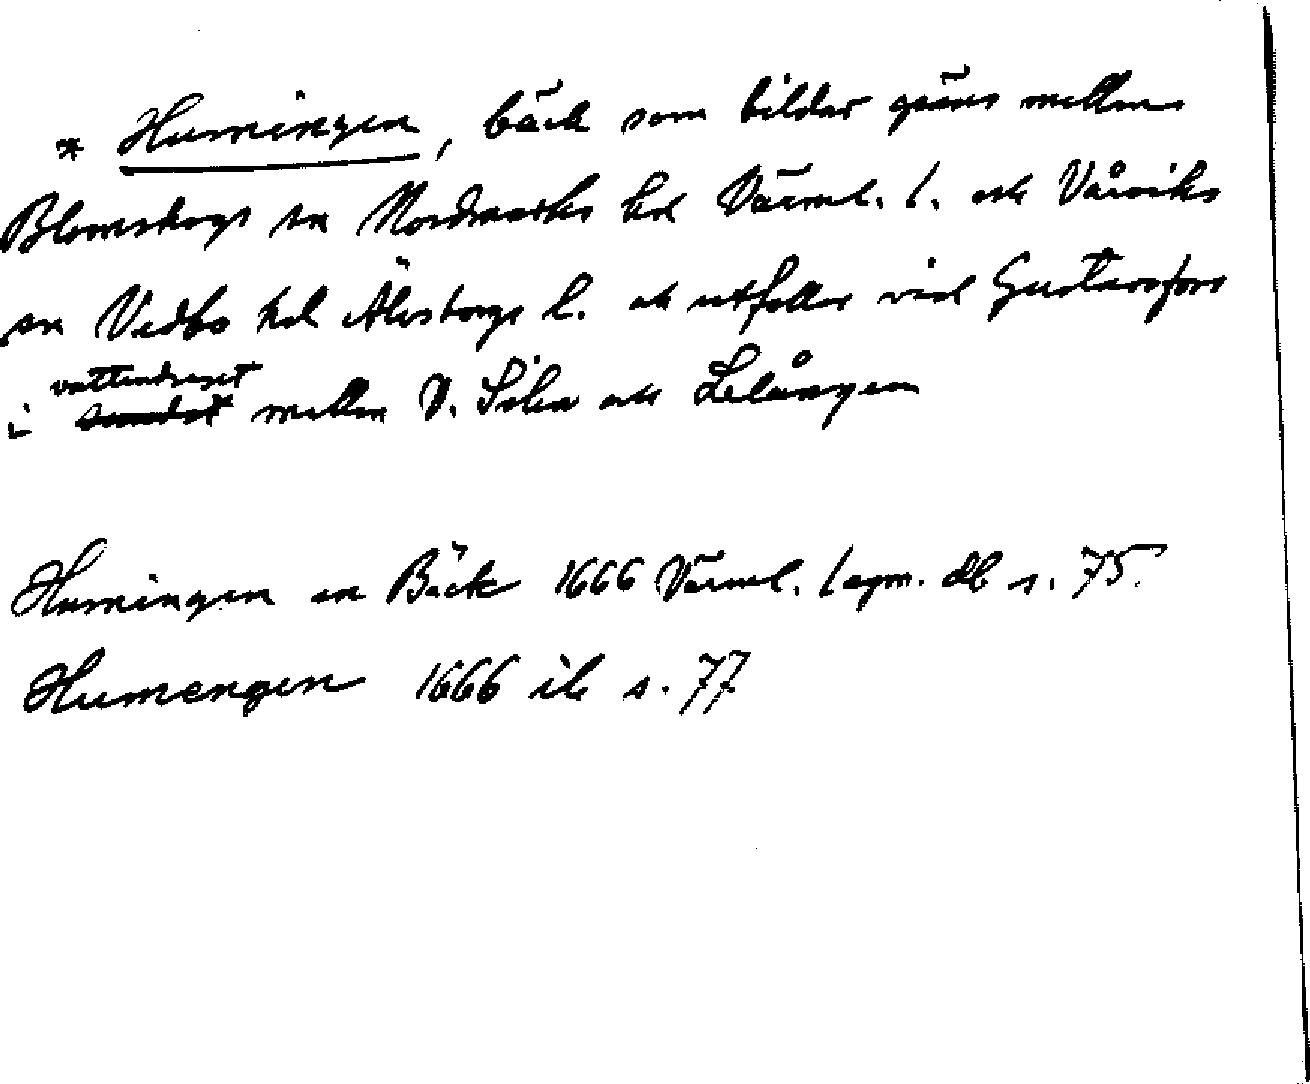 * Humingen, bäck som bildar gräns mellan
Blomskogs sn Nordmarks hd Värml. l. och Vårviks
sn Vedbo hd Älvsborgs l. och utfaller vid Gustavsfors
i vattendraget sundet mellan V. Silen och Lelången
Humingen en Bäck 1666 Värml. lagm. db s. 75.
Humengen 1666 ib s. 77